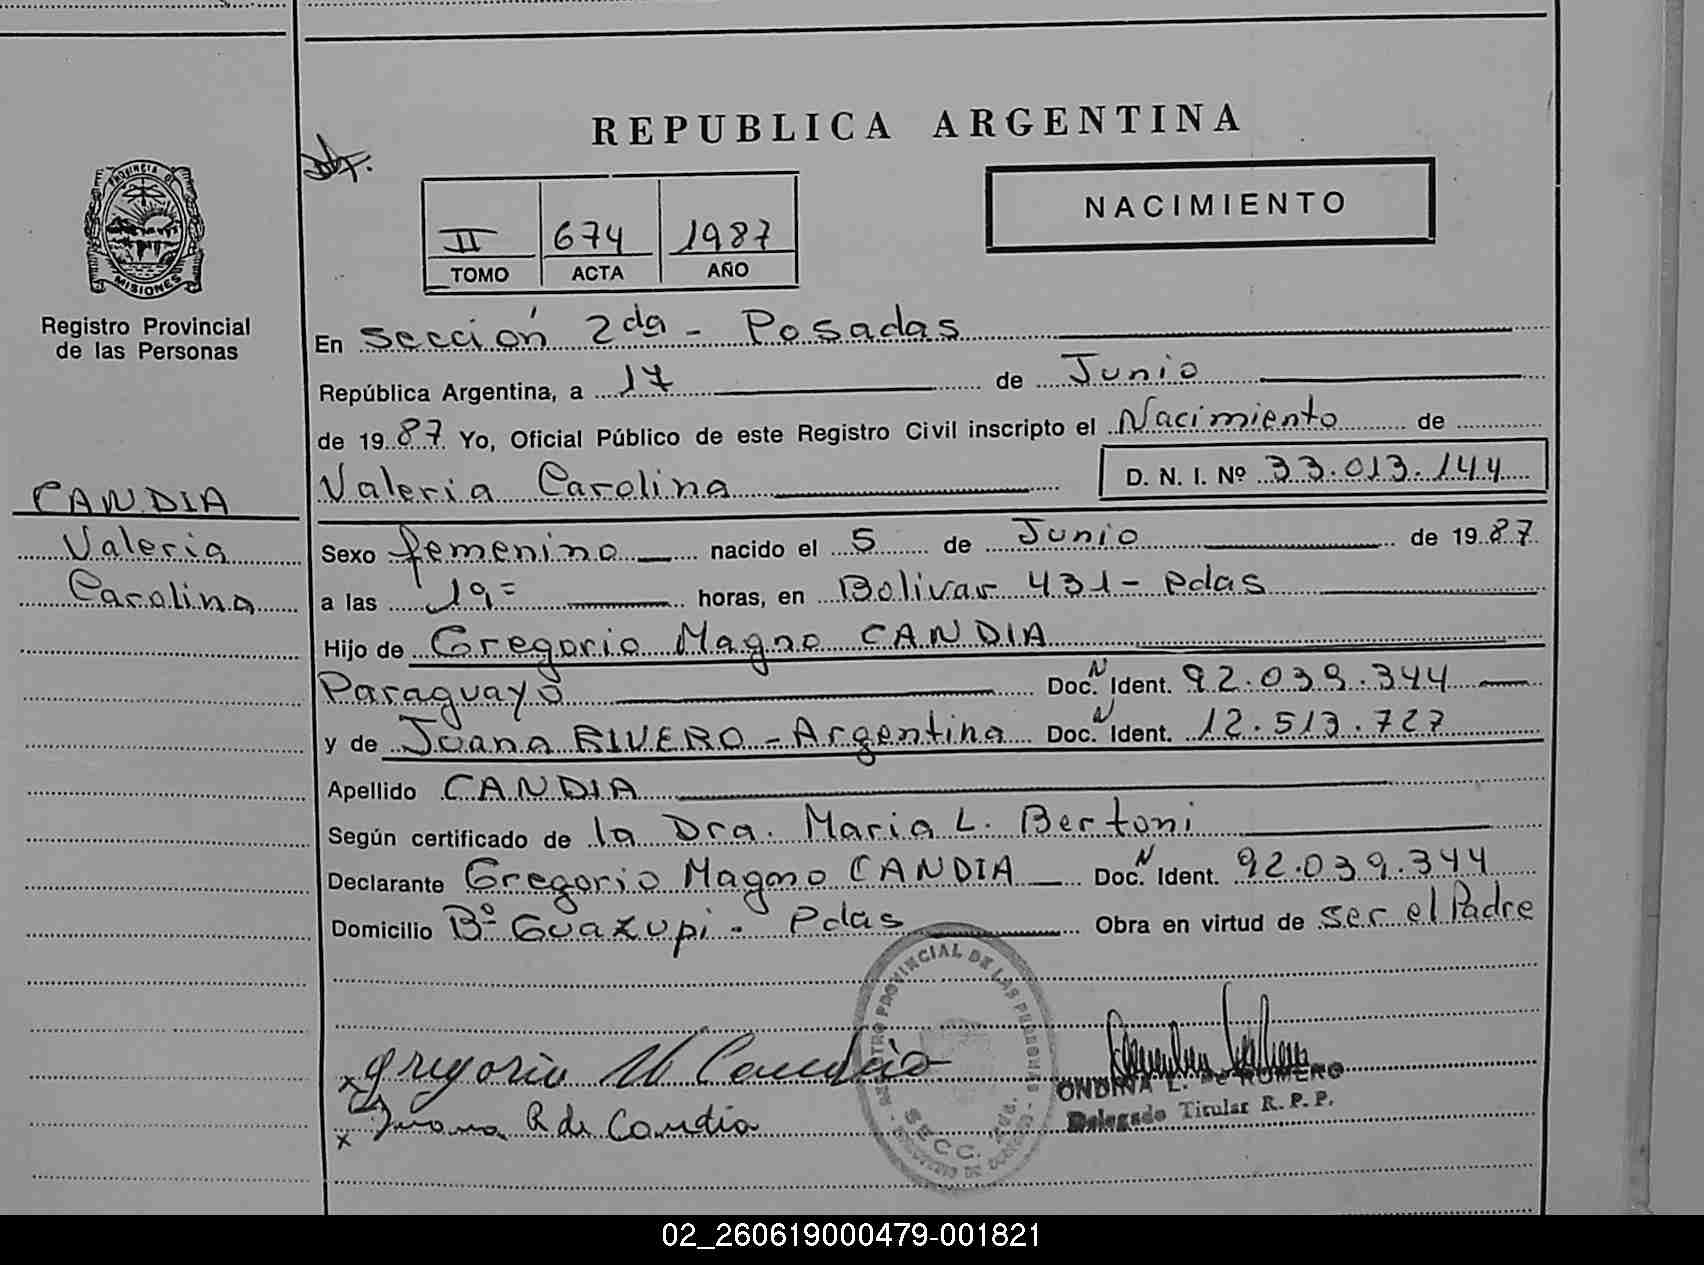 REPUBLICA ARGENTINA
PROVINCIA DE
MISIONES
Registro Provincial
de las Personas
NACIMIENTO
II 674 1987
TOMO ACTA AÑO
En Sección 2da - Posadas
República Argentina, a 17 de Junio
de 1987. Yo, Oficial Público de este Registro Civil inscripto el Nacimiento de
Valeria Carolina D. N. I. Nº 33.013.144
CANDIA
Valeria
Carolina
Sexo femenino nacido el 5 de Junio de 1987
a las 19= horas, en Bolivar 431 - Pdas
Hijo de Gregorio Magno CANDIA
Paraguayo Doc. N Ident. 92.039.344
y de Juana RIVERO - Argentina Doc. N Ident. 12.513.727
Apellido CANDIA
Según certificado de la Dra. Maria L. Bertoni
Declarante Gregorio Magno CANDIA Doc. N Ident. 92.039.344
Domicilio Bº Guazupi - Pdas Obra en virtud de ser el Padre
REGISTRO PROVINCIAL DE LAS PERSONAS
SECC.
x Gregorio M Candia
x Juana R de Candia
ONDINA L. de ROMERO
Delegado Titular R. P. P.
02_260619000479-001821